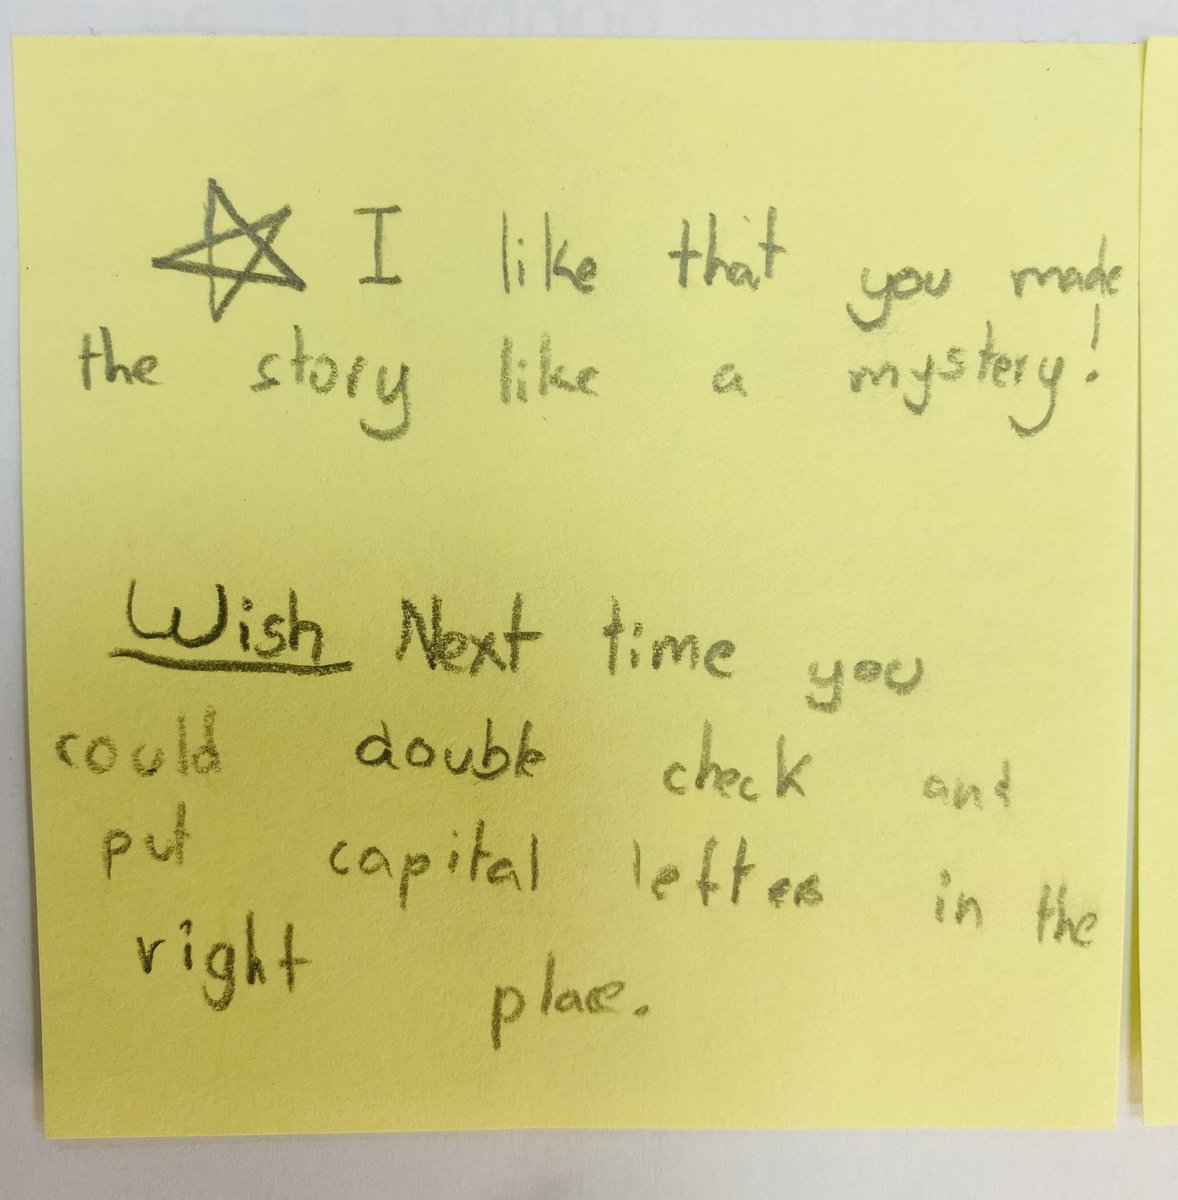 I like that you made
the story like a mystery!
Wish Next time you
could double check and
put capital lefters in the
right place.